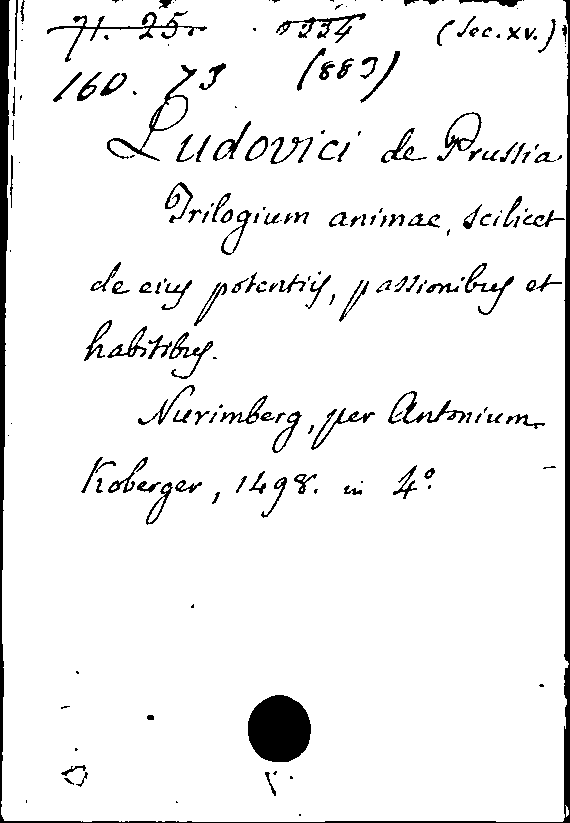 71. 25. 334 (Sec. xv.)
160. 73 (883)
Ludovici de Prussia
Trilogium animae, scilicet
de eius potentiis, passionibus et
habitibus.
Nurimberg, per Antonium
Koberger, 1498. in 4º.